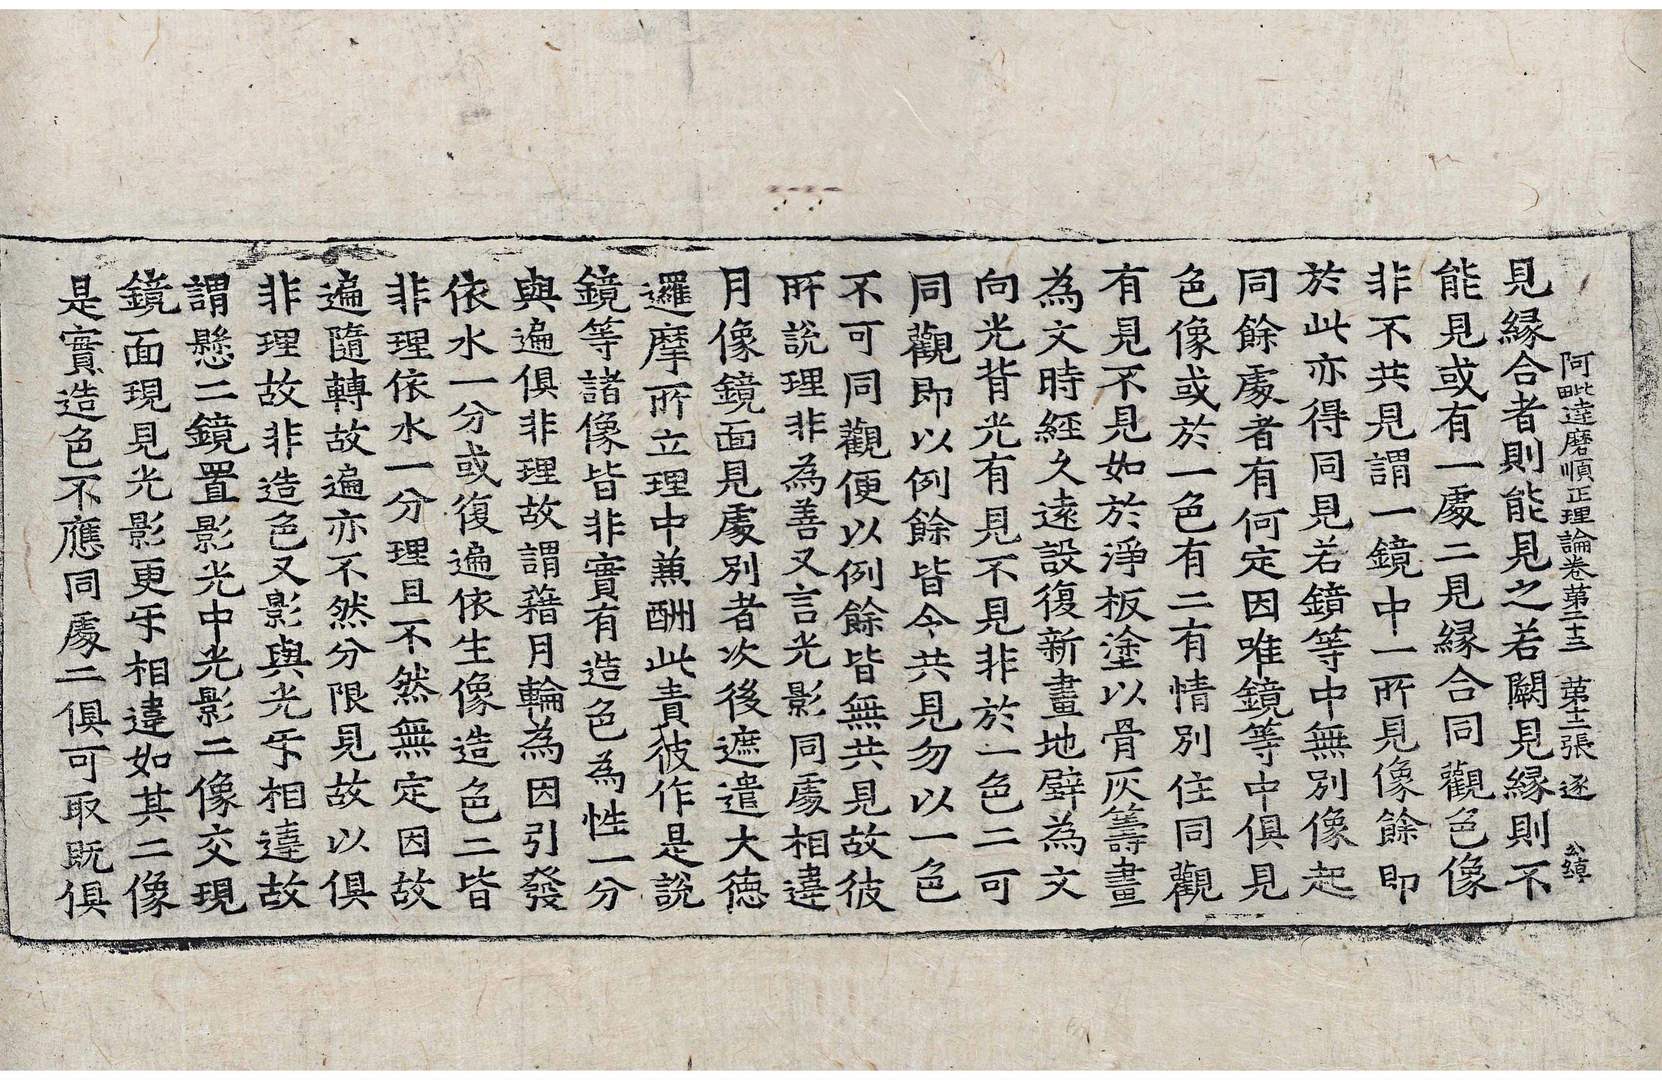 阿毗達磨順正理論卷第二十三 第十二張 逐 公綽
見緣合者則能見之若闕見緣則不
能見或有一處二見緣合同觀色像
非不共見謂一鏡中一所見像餘即
於此亦得同見若鏡等中無別像起
同餘處者有何定因唯鏡等中俱見
色像或於一色有二有情別住同觀
有見不見如於淨板塗以骨灰籌畫
為文時經久遠設復新畫地壁為文
向光背光有見不見非於一色二可
同觀即以例餘皆令共見勿以一色
不可同觀便以例餘皆無共見故彼
所說理非為善又言光影同處相違
月像鏡面見處別者次後遮遣大德
邏摩所立理中兼酬此責彼作是說
鏡等諸像皆非實有造色為性一分
與遍俱非理故謂藉月輪為因引發
依水一分或復遍依生像造色二皆
非理依水一分理且不然無定因故
遍隨轉故遍亦不然分限見故以俱
非理故非造色又影與光互相違故
謂懸二鏡置影光中光影二像交現
鏡面現見光影更互相違如其二像
是實造色不應同處二俱可取既俱